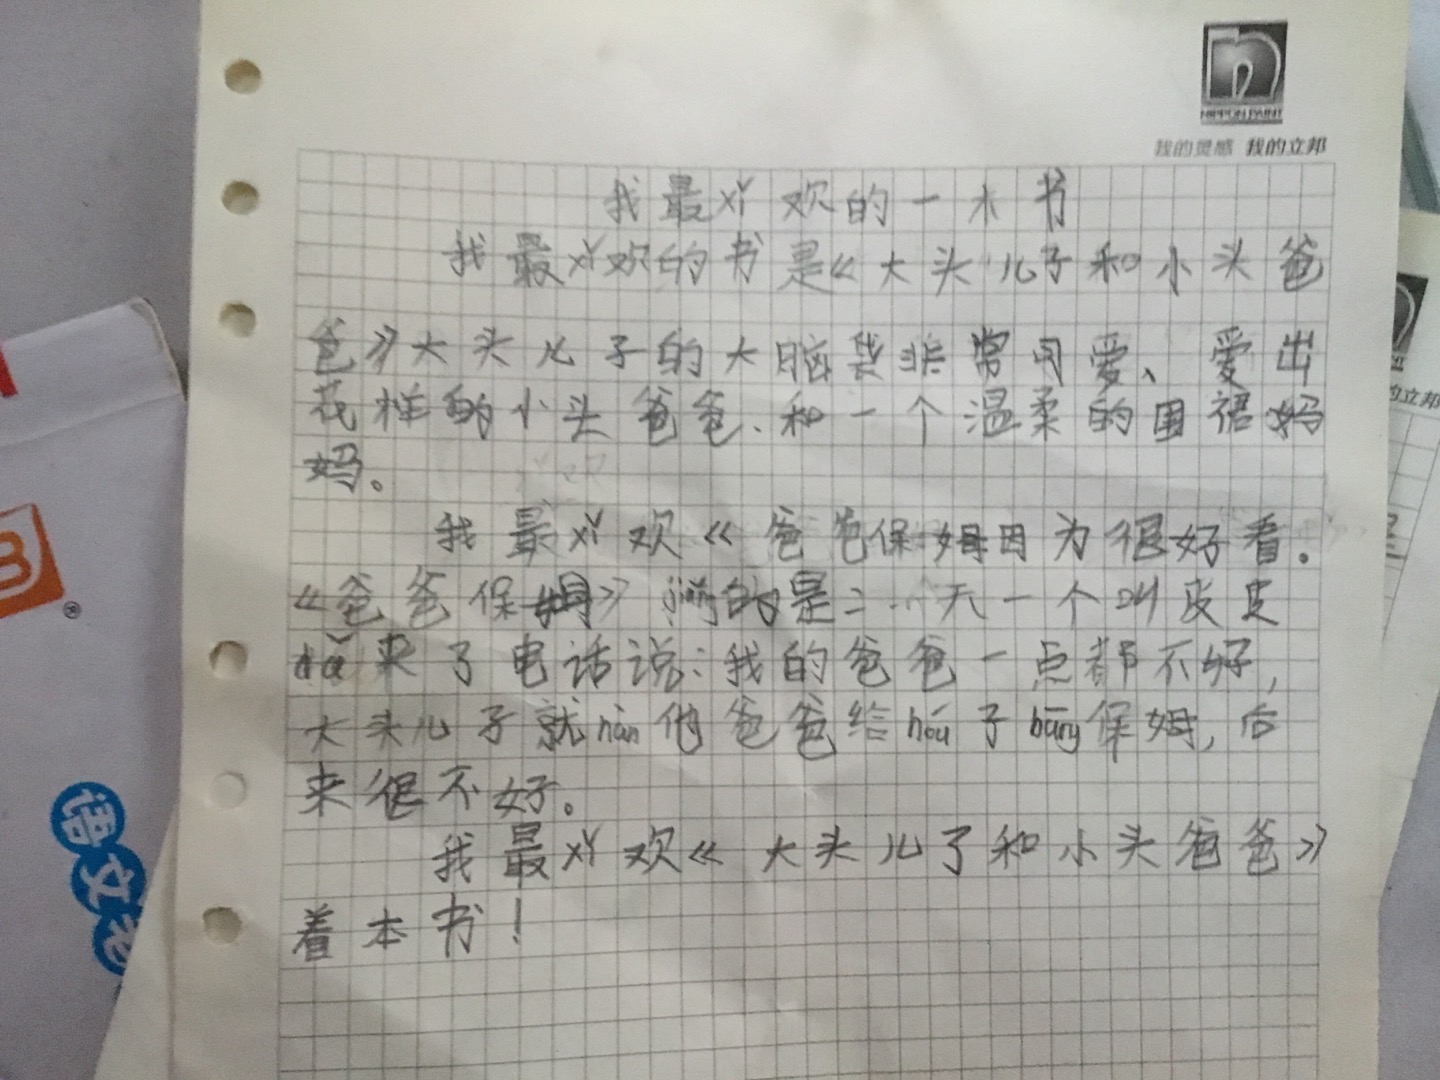 NIPPON PAINT
我的灵感 我的立邦
我最xǐ欢的一木书
我最xǐ欢的书是《大头儿子和小头爸
爸》大头儿子的大脑袋非常可爱、爱出
花样的小头爸爸、和一个温柔的围裙妈
妈。
我最xǐ欢《爸爸保姆因为很好看。
《爸爸保姆》jiǎng的是二个天一个叫皮皮
dǎ来了电话说:我的爸爸一点都不好,
大头儿子就ràn他爸爸给hóu子bāng保姆,后
来很不好。
我最xǐ欢《大头儿子和小头爸爸》
着本书!
语文老
®
的立邦